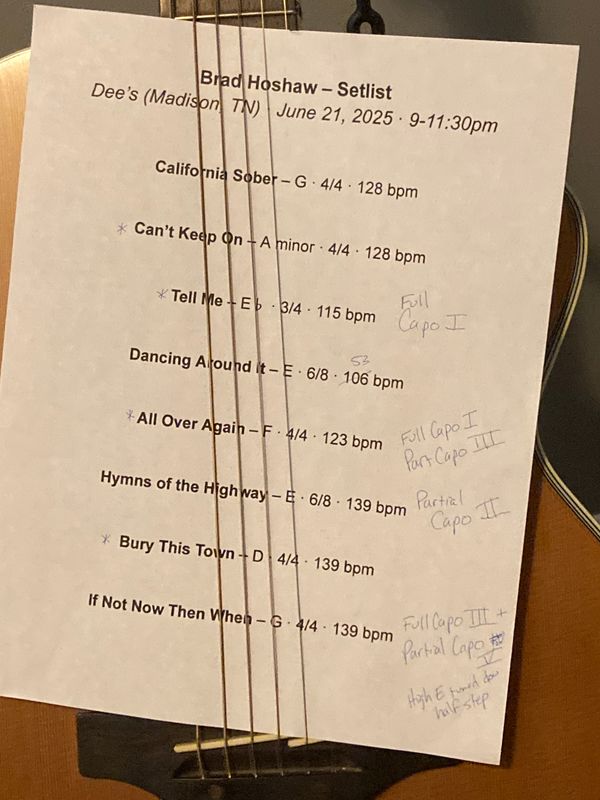 Brad Hoshaw – Setlist
Dee's (Madison, TN) · June 21, 2025 · 9-11:30pm
California Sober – G · 4/4 · 128 bpm
* Can't Keep On – A minor · 4/4 · 128 bpm
* Tell Me – E♭ · 3/4 · 115 bpm
Full
Capo I
53
Dancing Around It – E · 6/8 · 106 bpm
* All Over Again – F · 4/4 · 123 bpm
Full Capo I
Part Capo III
Hymns of the Highway – E · 6/8 · 139 bpm
Partial
Capo II
* Bury This Town – D · 4/4 · 139 bpm
If Not Now Then When – G · 4/4 · 139 bpm
Full Capo III +
Partial Capo
V
High E tuned down
half step